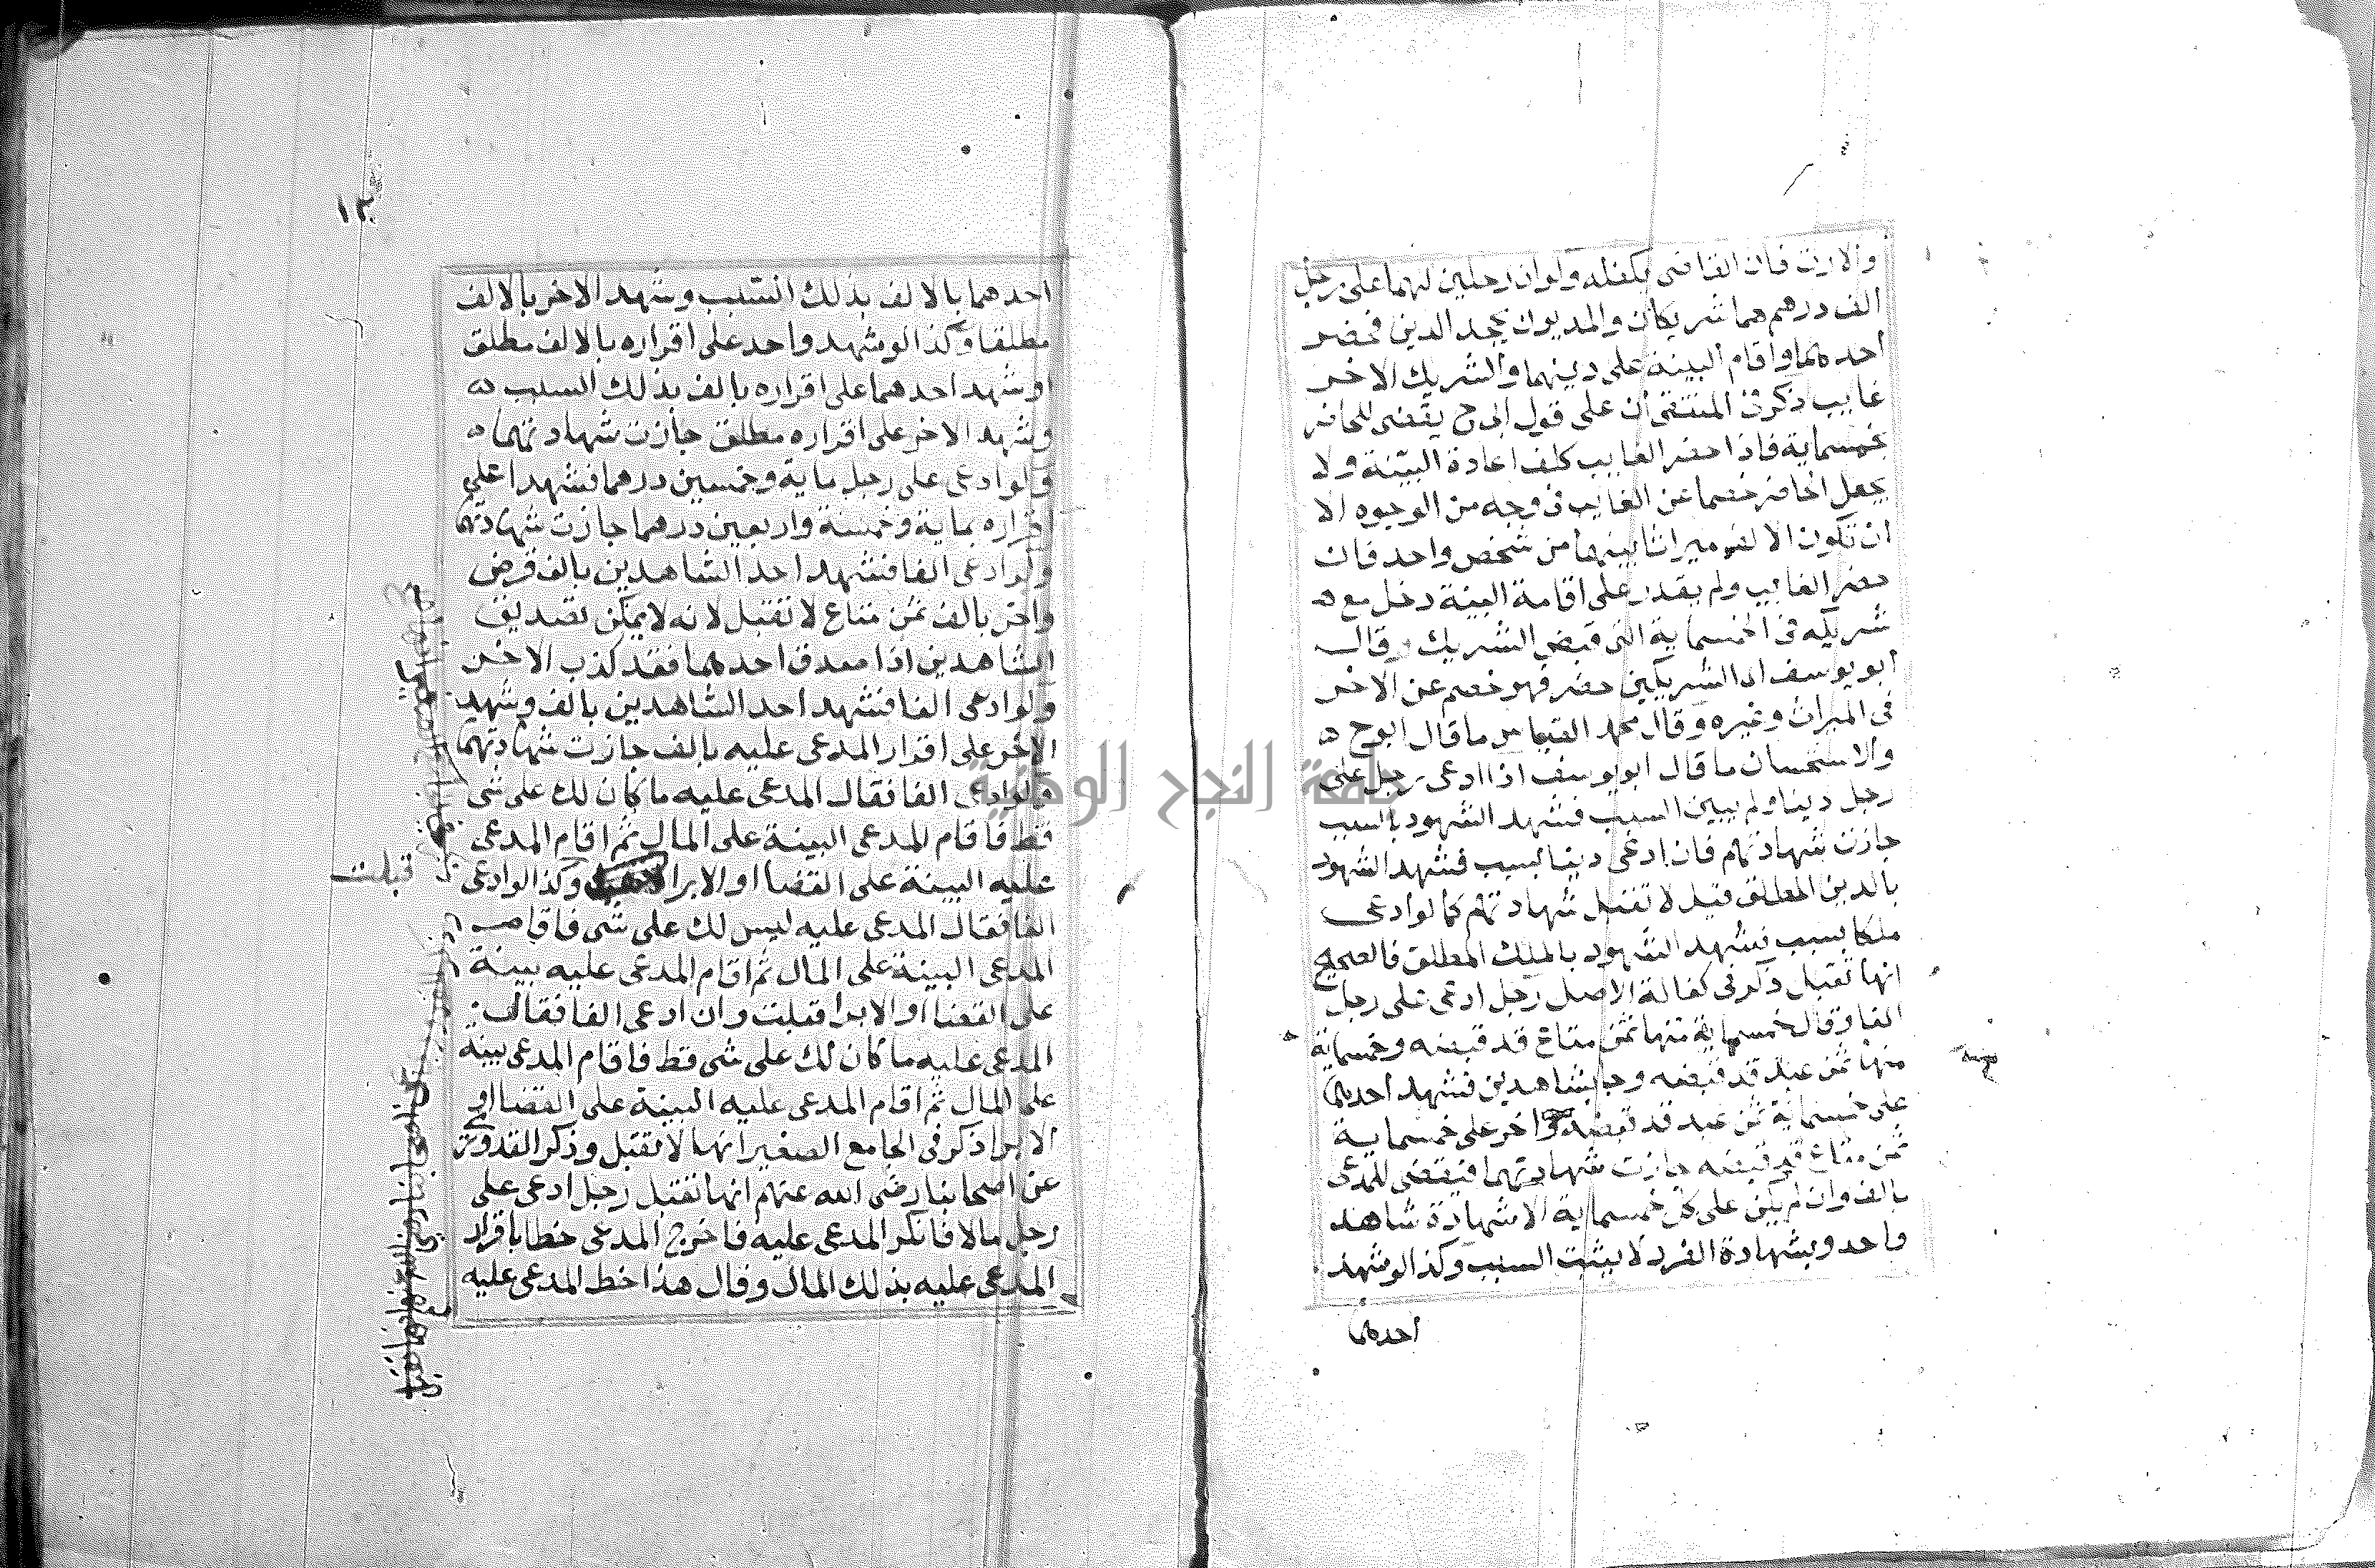 والارث فان القاضى يكفله ولو ان رجلين لهما على رجل
الف درهم هما شريكان والمديون يجحد الدين فحضر
احدهما واقام البينة على دينهما والشريك الاخر
غايب ذكر فى المنتقى ان على قول ابى ح يقضى للحاضر
بخمسماية فاذا حضر الغايب كلف اعادة البينة ولا
يجعل الحاضر خصما عن الغايب فى وجه من الوجوه الا
ان تكون الالف ميراثا بينهما من شخص واحد فان
حضر الغايب ولم يقدر على اقامة البينة دخل مع
شريكه فى الخمسماية التى قبض الشريك وقال
ابو يوسف اى الشريكين حضر فهو خصم عن الاخر
فى الميراث وغيره وقال محمد القياس ما قال ابو ح
والاستحسان ما قال ابو يوسف اذا ادعى رجل على
رجل دينا ولم يبين السبب فشهد الشهود بالسبب
جازت شهادتهم فان ادعى دينا بسبب فشهد الشهود
بالدين المطلق قيل لا تقبل شهادتهم كما لو ادعى
ملكا بسبب فشهد الشهود بالملك المطلق فالصحيح
انها تقبل ذكر فى كفالة الاصل رجل ادعى على رجل
الفا وقال خمسماية منها ثمن متاع قد قبضه وخمسماية
منها ثمن عبد قد قبضه وجا بشاهدين فشهد احدهما
على خمسماية ثمن عبد قد قبضه واخر على خمسماية
ثمن متاع قد قبضه جازت شهادتهما فيقضى للمدعى
بالف وان لم يكن على كل خمسماية الا شهادة شاهد
واحد وبشهادة الفرد لا يثبت السبب وكذا لو شهد
احدهما
احدهما بالالف بذلك السبب وشهد الاخر بالالف
مطلقا وكذا لو شهد واحد على اقراره بالالف مطلق
او شهد احدهما على اقراره بالف بذلك السبب
وشهد الاخر على اقراره مطلق جازت شهادتهما
ولو ادعى على رجل ماية وخمسين درهما فشهدا على
اقراره بماية وخمسة واربعين درهما جازت شهادتهما
ولو ادعى الفا فشهد احد الشاهدين بالف قرض
واخر بالف ثمن متاع لا تقبل لانه لا يمكن تصديق
الشاهدين اذا صدق احدهما فقد كذب الاخر
ولو ادعى الفا فشهد احد الشاهدين بالف وشهد
الاخر على اقرار المدعى عليه بالف جازت شهادتهما
ولو ادعى الفا فقال المدعى عليه ما كان لك على شى
قط فاقام المدعى البينة على المال ثم اقام المدعى
عليه البينة على القضا او الابرا وكذا لو ادعى
قبلت
الفا فقال المدعى عليه ليس لك على شى فاقام
المدعى البينة على المال ثم اقام المدعى عليه بينة
على القضا او الابرا قبلت وان ادعى الفا فقال
المدعى عليه ما كان لك على شى قط فاقام المدعى بينة
على المال ثم اقام المدعى عليه البينة على القضا او
الابرا ذكر فى الجامع الصغير انها لا تقبل وذكر القدورى
عن اصحابنا رضى الله عنهم انها تقبل رجل ادعى على
رجل مالا فانكر المدعى عليه فاخرج المدعى خطا باقرار
المدعى عليه بذلك المال وقال هذا خط المدعى عليه
جامعة النجاح الوطنية